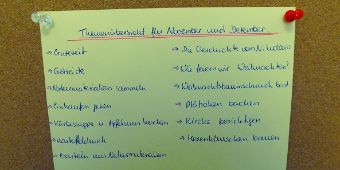 Themenübersicht für November und Dezember
→ Erntezeit
→ Getreide
→ Naturmaterialien sammeln
→ Einkaufen gehen
→ Kürbissuppe u. Apfelmus kochen
→ Kartoffeldruck
→ Basteln aus Naturmaterialien
→ Die Geschichte von Nikolaus
→ Wie feiern wir Weihnachten?
→ Weihnachtsbaumschmuck
→ Plätzchen backen
→ Kirche besichtigen
→ Hexenhäuschen bauen